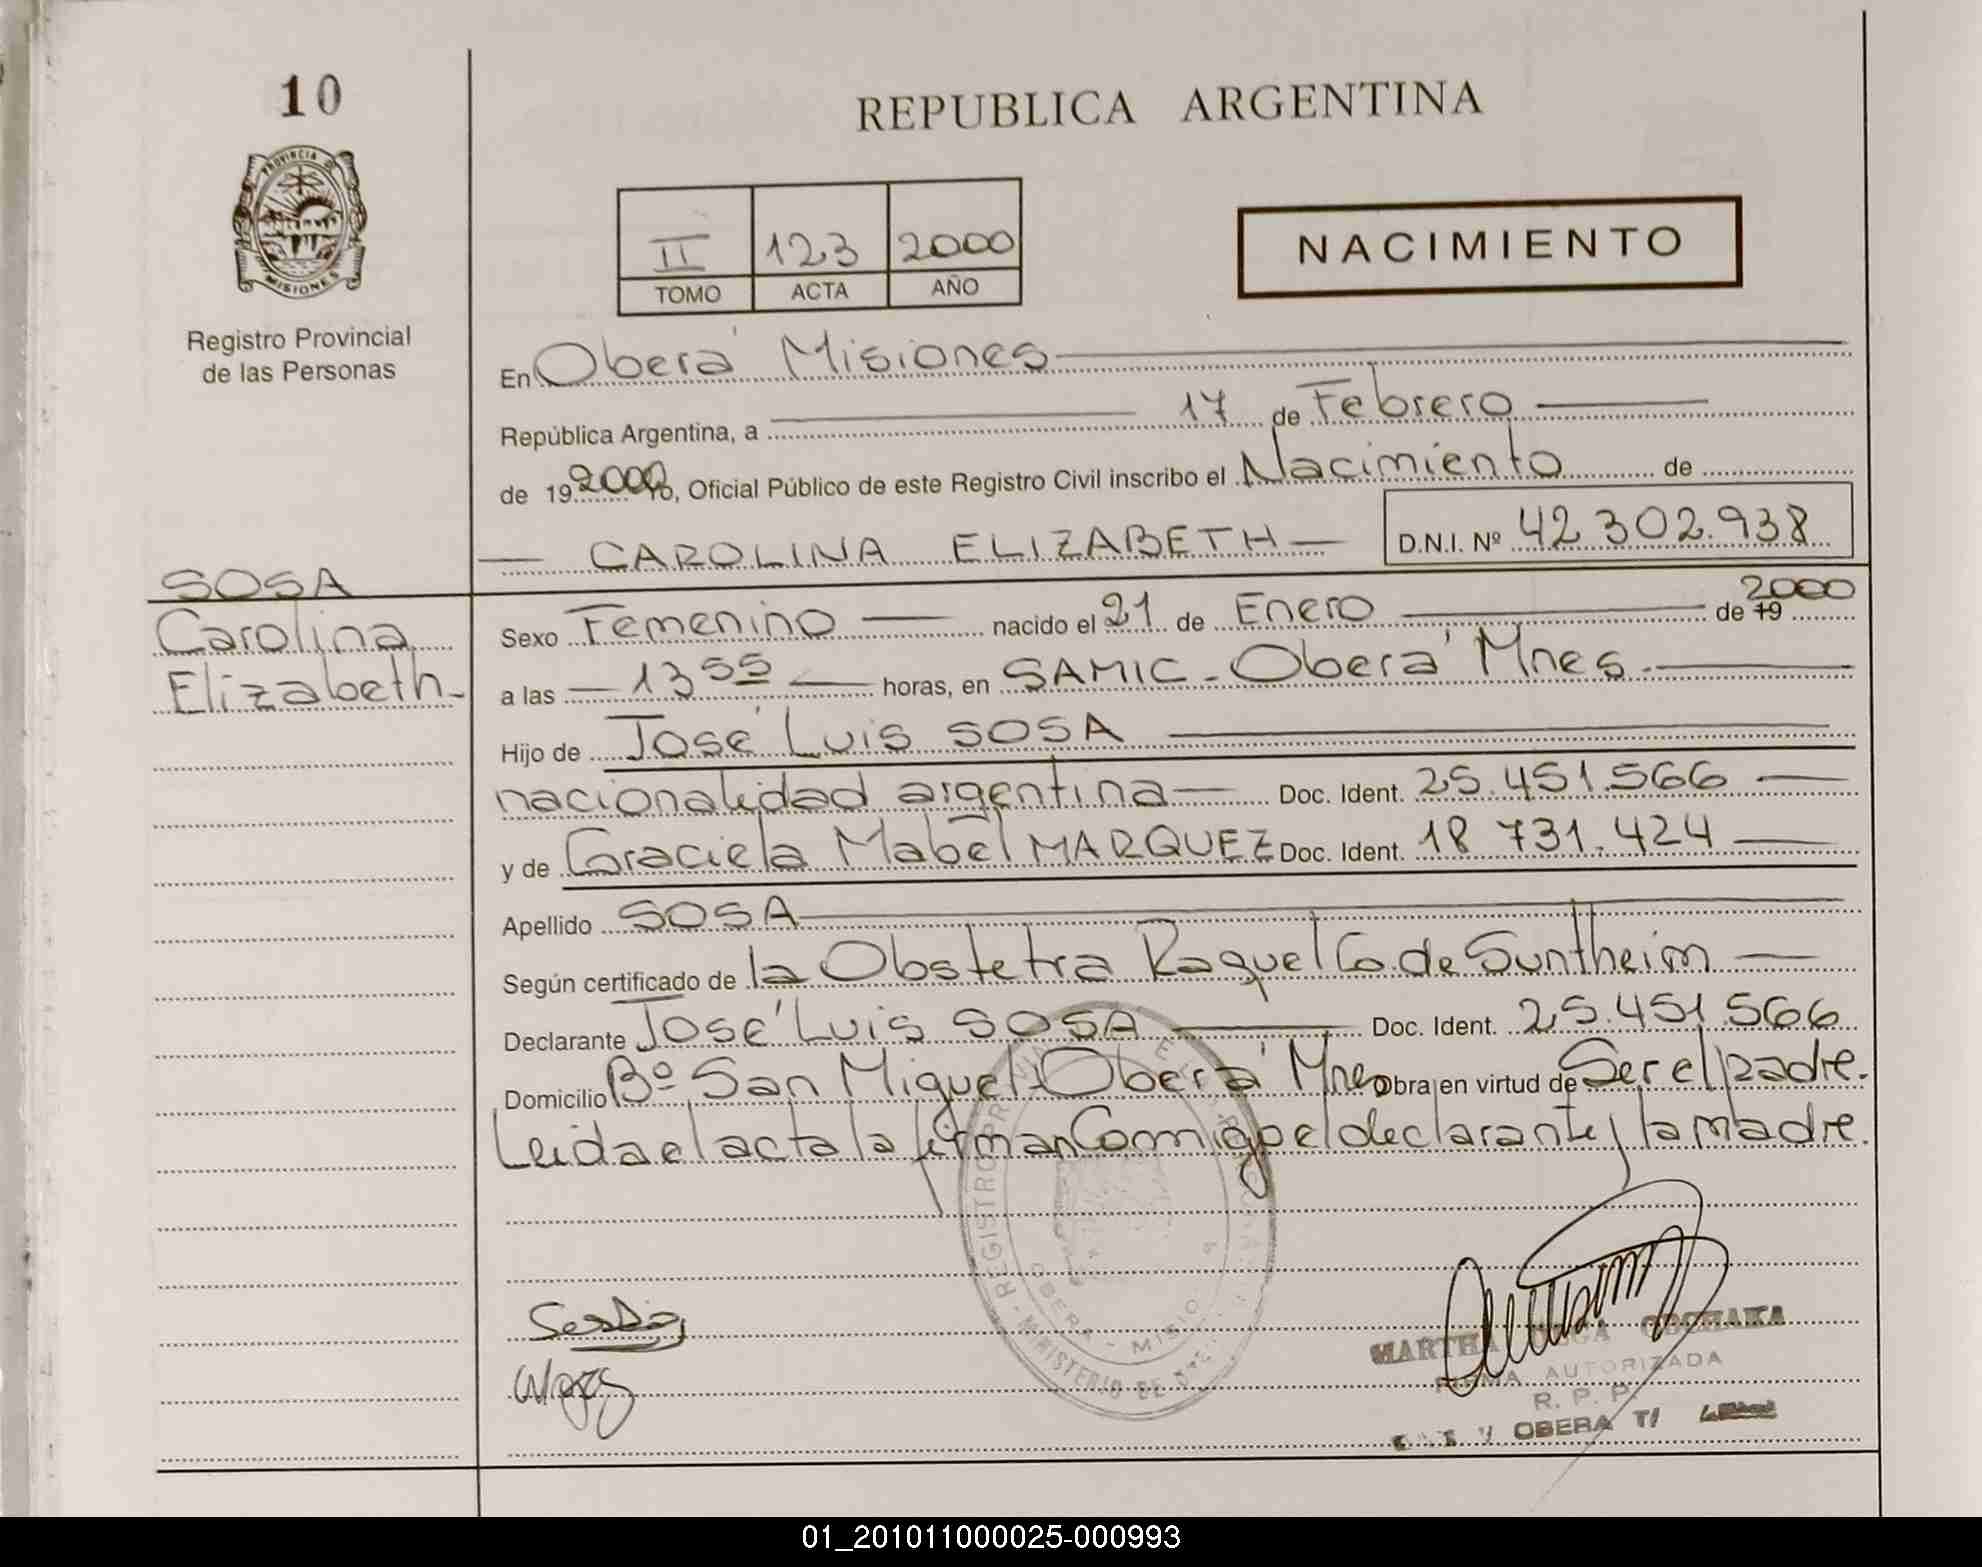 10
PROVINCIA DE
MISIONES
Registro Provincial
de las Personas
REPUBLICA ARGENTINA
II 123 2000
TOMO ACTA AÑO
NACIMIENTO
En Oberá Misiones
República Argentina, a 17 de Febrero
de 19 2000 Yo, Oficial Público de este Registro Civil inscribo el Nacimiento de
CAROLINA ELIZABETH D.N.I. Nº 42302.938
SOSA
Carolina
Elizabeth
Sexo Femenino nacido el 21 de Enero de 19 2000
a las 13 55 horas, en SAMIC - Oberá Mnes.
Hijo de José Luis SOSA
nacionalidad argentina Doc. Ident. 25.451.566
y de Graciela Mabel MARQUEZ Doc. Ident. 18 731.424
Apellido SOSA
Según certificado de la Obstetra Raquel Co. de Suntheim
Declarante José Luis SOSA Doc. Ident. 25.451.566
Domicilio Bº San Miguel - Oberá Mnes Obra en virtud de Ser el padre.
Leida el acta la firman Conmigo el declarante y la madre.
REGISTRO
OBERA - MISIO
MINISTERIO DE
MARTHA
FIRMA AUTORIZADA
R. P. P.
OBERA
01_201011000025-000993